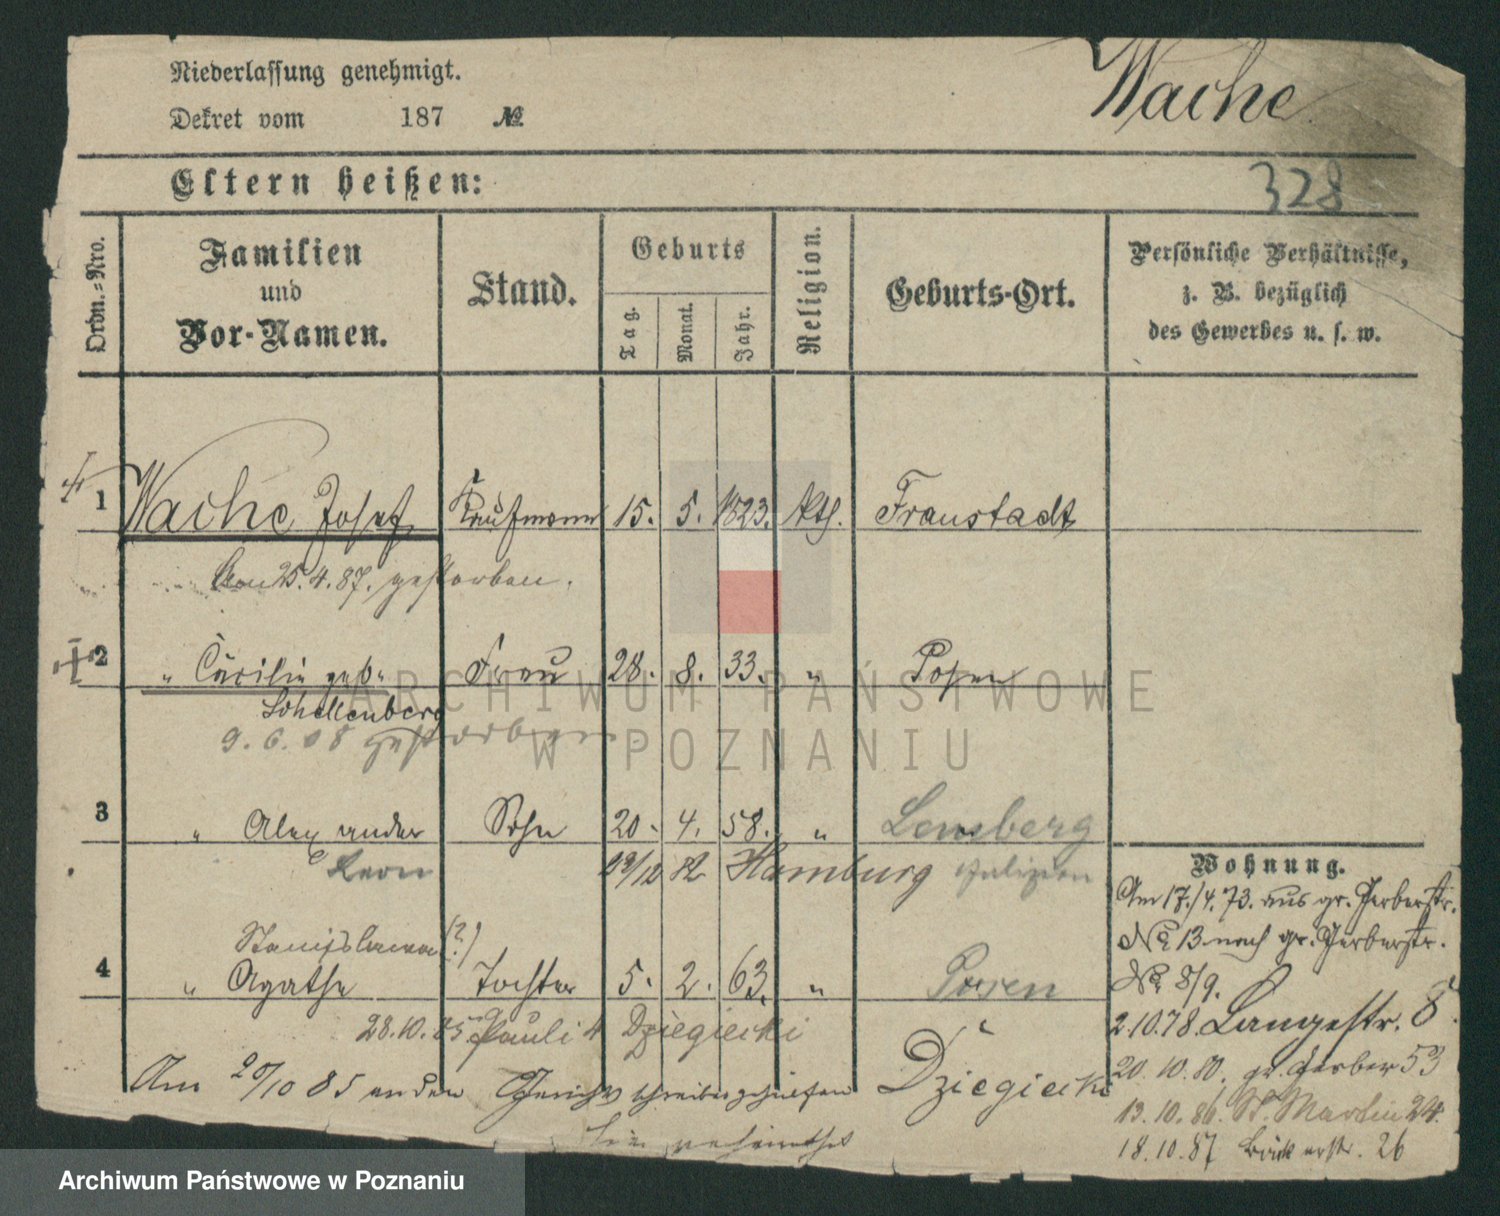 Niederlassung genehmigt.
Wache
Dekret vom 187 №
Eltern heißen:
328
Ordn.-Nro.
Familien und Vor-Namen.
Stand.
Geburts
Tag.
Monat.
Jahr.
Religion.
Geburts-Ort.
Persönliche Verhältnisse,
z. B. bezüglich
des Gewerbes u. s. w.
1 Wache Josef Kaufmann 15. 5. 1823. kth. Fraustadt
Am 25.4.87. gestorben.
2 " Cäcilie geb. Frau 28. 8. 33. " Posen
Schellenberg
9.6.08 gestorben
3 " Alexander Sohn 20. 4. 58. " Lemberg
Leon Hamburg Galizien
Stanislawa (?)
4 " Agathe Tochter 5. 2. 63. " Posen
28.10.85 Pauli 4 Dziegiecki
Am 20/10 85 an den Gerichtsschreibergehülfen Dziegiecki
hier verheirathet
Wohnung.
Am 17./4.73. aus gr. Gerberstr.
№ 13 nach gr. Gerberstr.
№ 8/9.
2.10.78. Langestr. 8.
20.10.80. gr. Gerber 53
13.10.86. St. Martin 24.
18.10.87 Bäckerstr. 26
ARCHIWUM PAŃSTWOWE
W POZNANIU
Archiwum Państwowe w Poznaniu